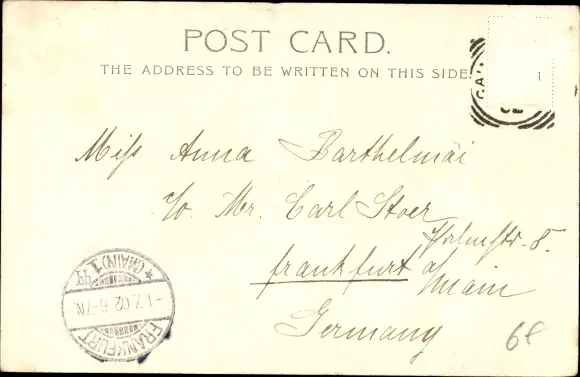 POST CARD.
THE ADDRESS TO BE WRITTEN ON THIS SIDE.
Miss Anna Barthelmäi
c/o. Mr. Carl Stoer
8.
Frankfurt a/
Main
Germany
FRANKFURT
-1.7.02.6-7N.
* (MAIN) 1